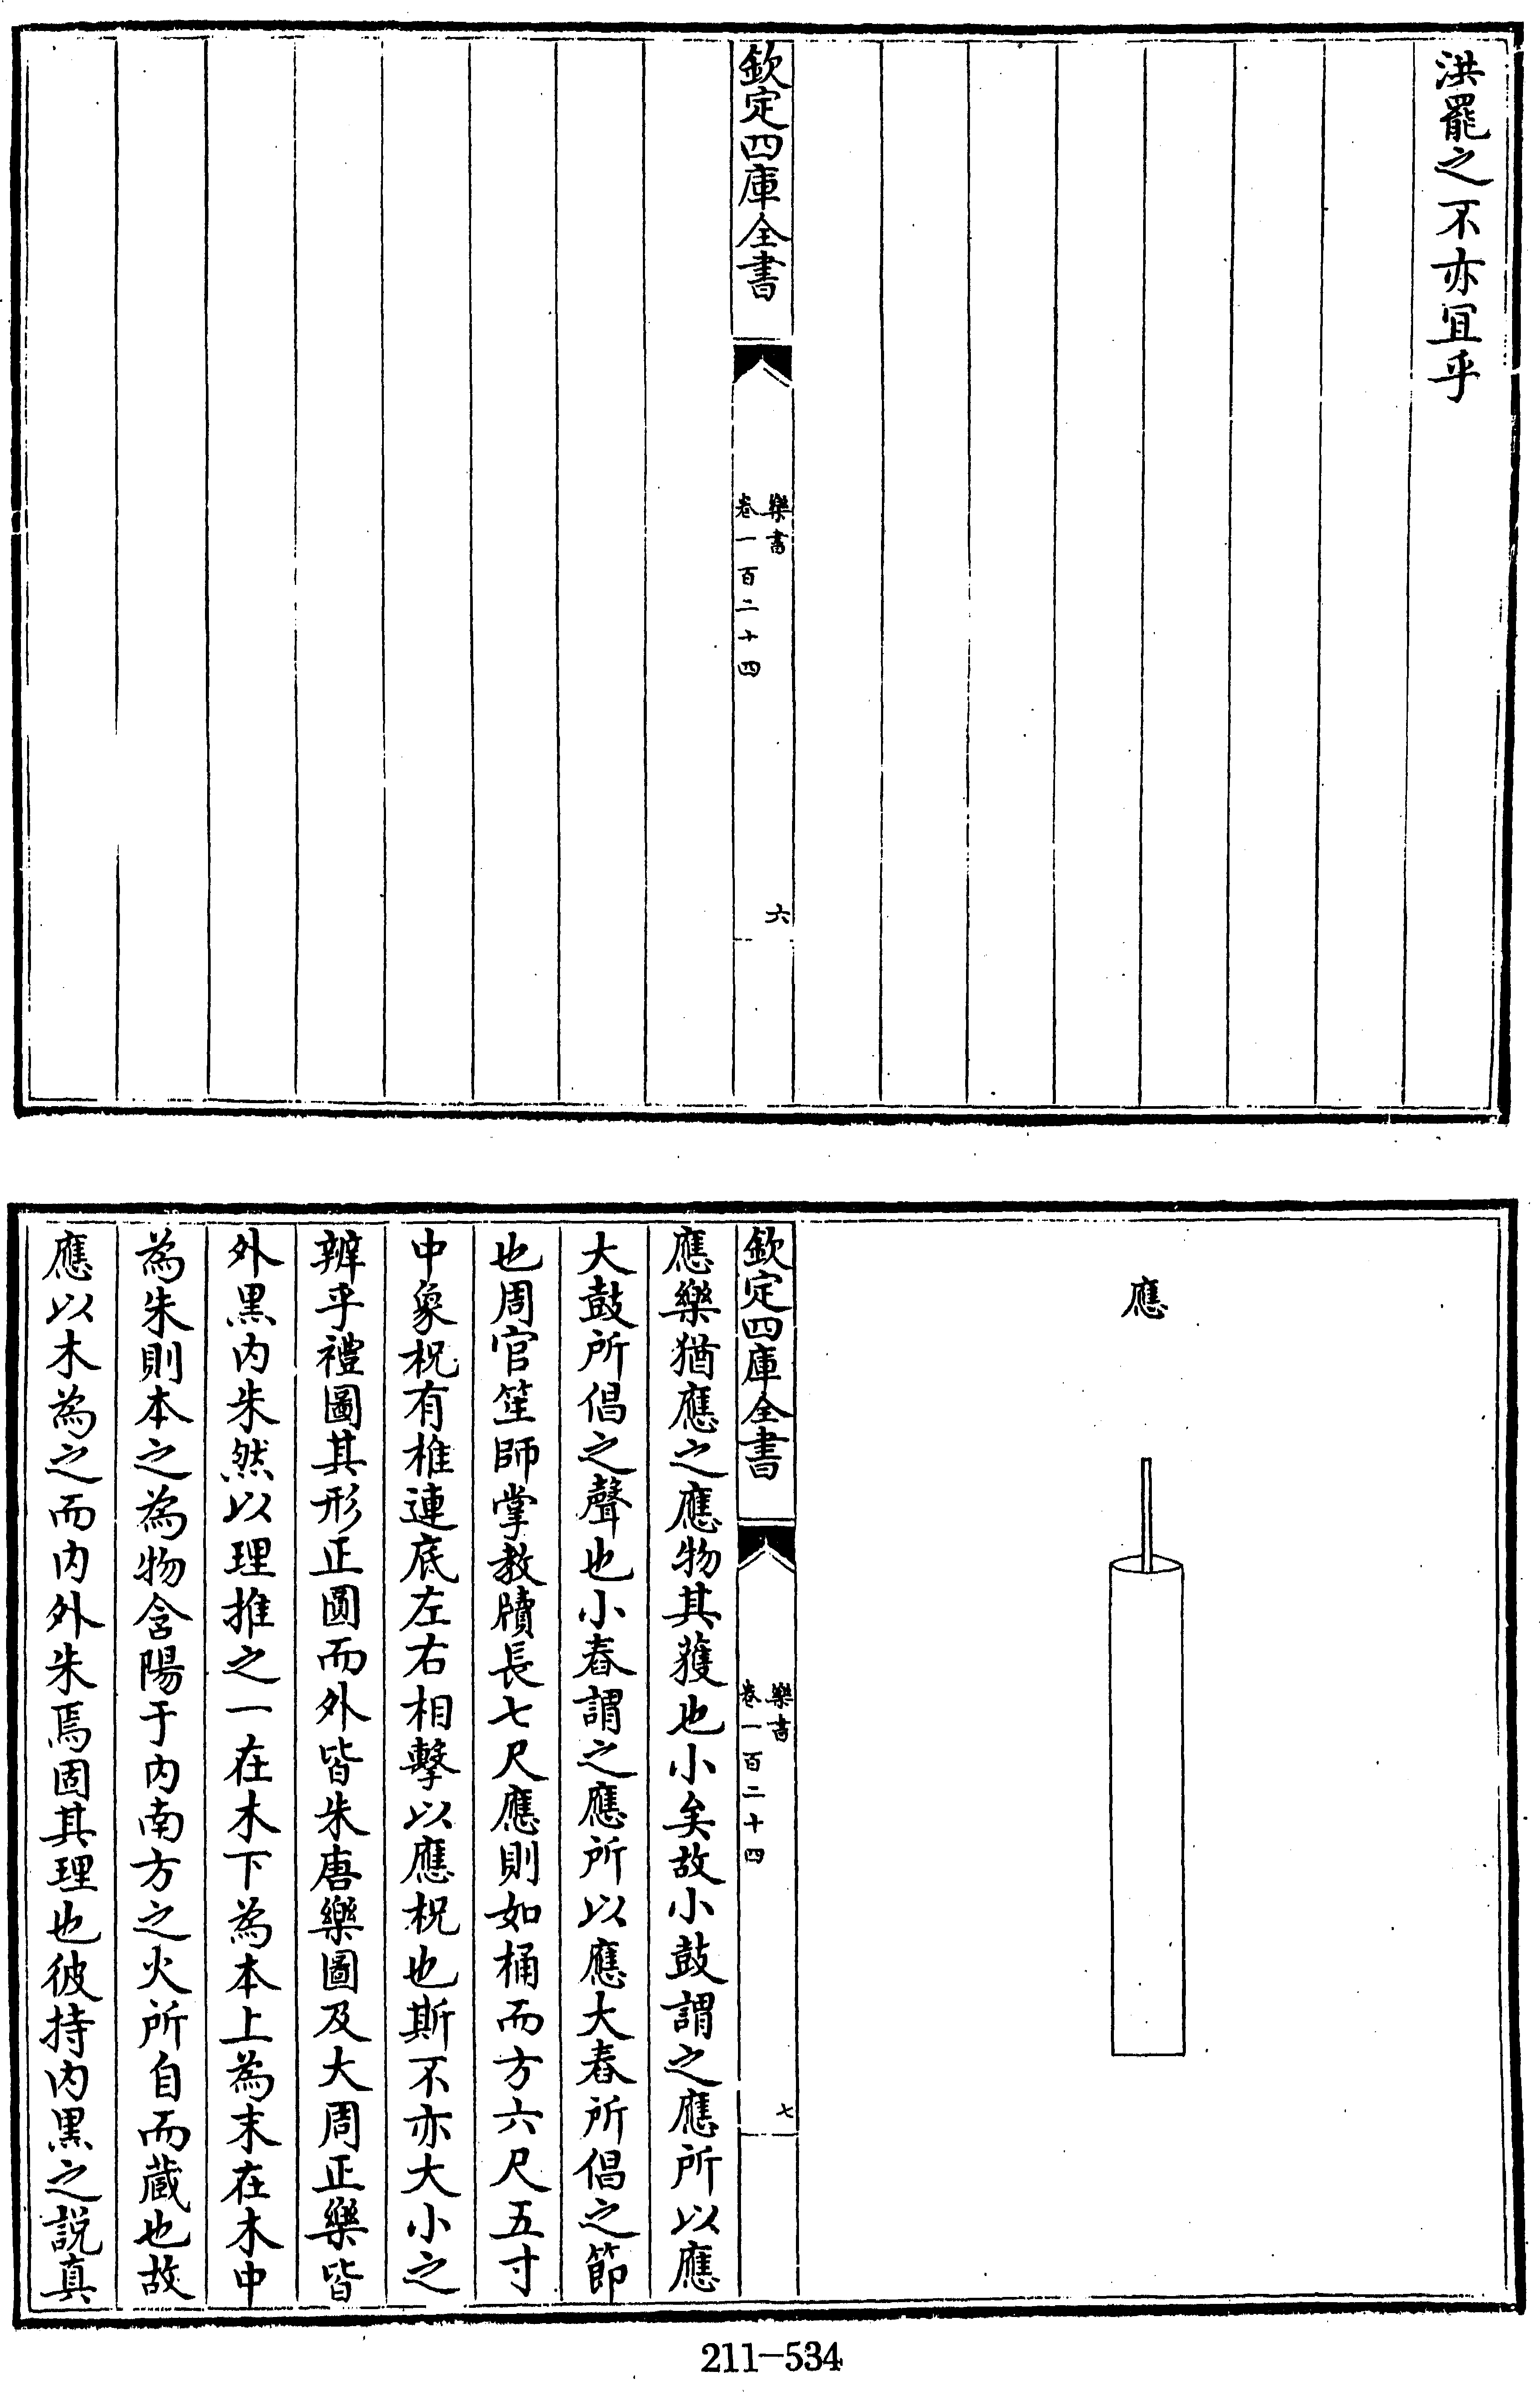 洪罷之不亦宜乎
欽定四庫全書
樂書
卷一百二十四
六
應
欽定四庫全書
樂書
卷一百二十四
七
應樂猶應之應物其獲也小矣故小鼓謂之應所以應
大鼓所倡之聲也小舂謂之應所以應大舂所倡之節
也周官笙師掌教牘長七尺應則如桶而方六尺五寸
中象柷有椎連底左右相擊以應柷也斯不亦大小之
辨乎禮圖其形正圓而外皆朱唐樂圖及大周正樂皆
外黑内朱然以理推之一在木下為本上為末在木中
為朱則本之為物含陽于内南方之火所自而藏也故
應以木為之而内外朱焉固其理也彼持内黑之説真
211-534